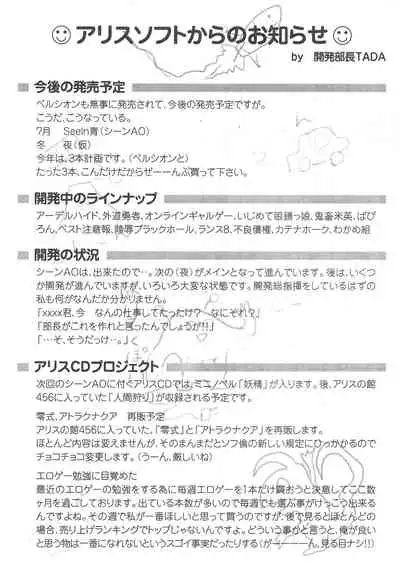 アリスソフトからのお知らせ
by 開発部長TADA
今後の発売予定
ベルシオンも無事に発売されて、今後の発売予定ですが。
こうだ、こうなっている。
7月 SeeIn青(シーンAO)
冬 夜(仮)
今年は、3本計画です。(ベルシオンと)
たった3本、こんだけだからぜーーんぶ買って下さい。
開発中のラインナップ
アーデルハイド、外道勇者、オンラインギャルゲー、いじめて眼鏡っ娘、鬼畜米英、ぱぴ
ろん、ベスト注意報、陵辱ブラックホール、ランス8、不良債権、カテナホーク、わかめ組
開発の状況
シーンAOは、出来たので…。次の(夜)がメインとなって進んでいます。後は、いくつ
か開発が進んでいますが、いろいろ大変な状態です。開発総指揮をしているはずの
私も何がなんだか分かりません。
「xxxx君、今 なんの仕事してたっけ? なにそれ?」
「部長がこれを作れと言ったんでしょうが!!」
「…そ、そうだっけ…。」く
アリスCDプロジェクト
次回のシーンAOに付くアリスCDでは、ミニノベル「妖精」が入ります。後、アリスの館
456に入っていた「人間狩り」が収録される予定です。
零式、アトラクナクア 再販予定
アリスの館456に入っていた、「零式」と「アトラクナクア」を再販します。
ほとんど内容は変えませんが、そのまんまだとソフ倫の新しい規定にひっかかるので
チョコチョコ変更します。(うーん、厳しいね)
エロゲー勉強に目覚めた
最近のエロゲーの勉強をする為に毎週エロゲーを1本だけ買おうと決意してここ数
ヶ月を過ごしております。出ている本数が多いので毎週でも選ぶ事がけっこう出来る
んですよね。その週で私が一番ほしいと思って買うのですが、後で見るとほとんどの
場合、売り上げランキングでトップじゃないんですよ。どういう事かと言うと、俺が良い
と思う物は一番になれないというスゴイ事実だったりする(がーーーーん、見る目ナシ!!)